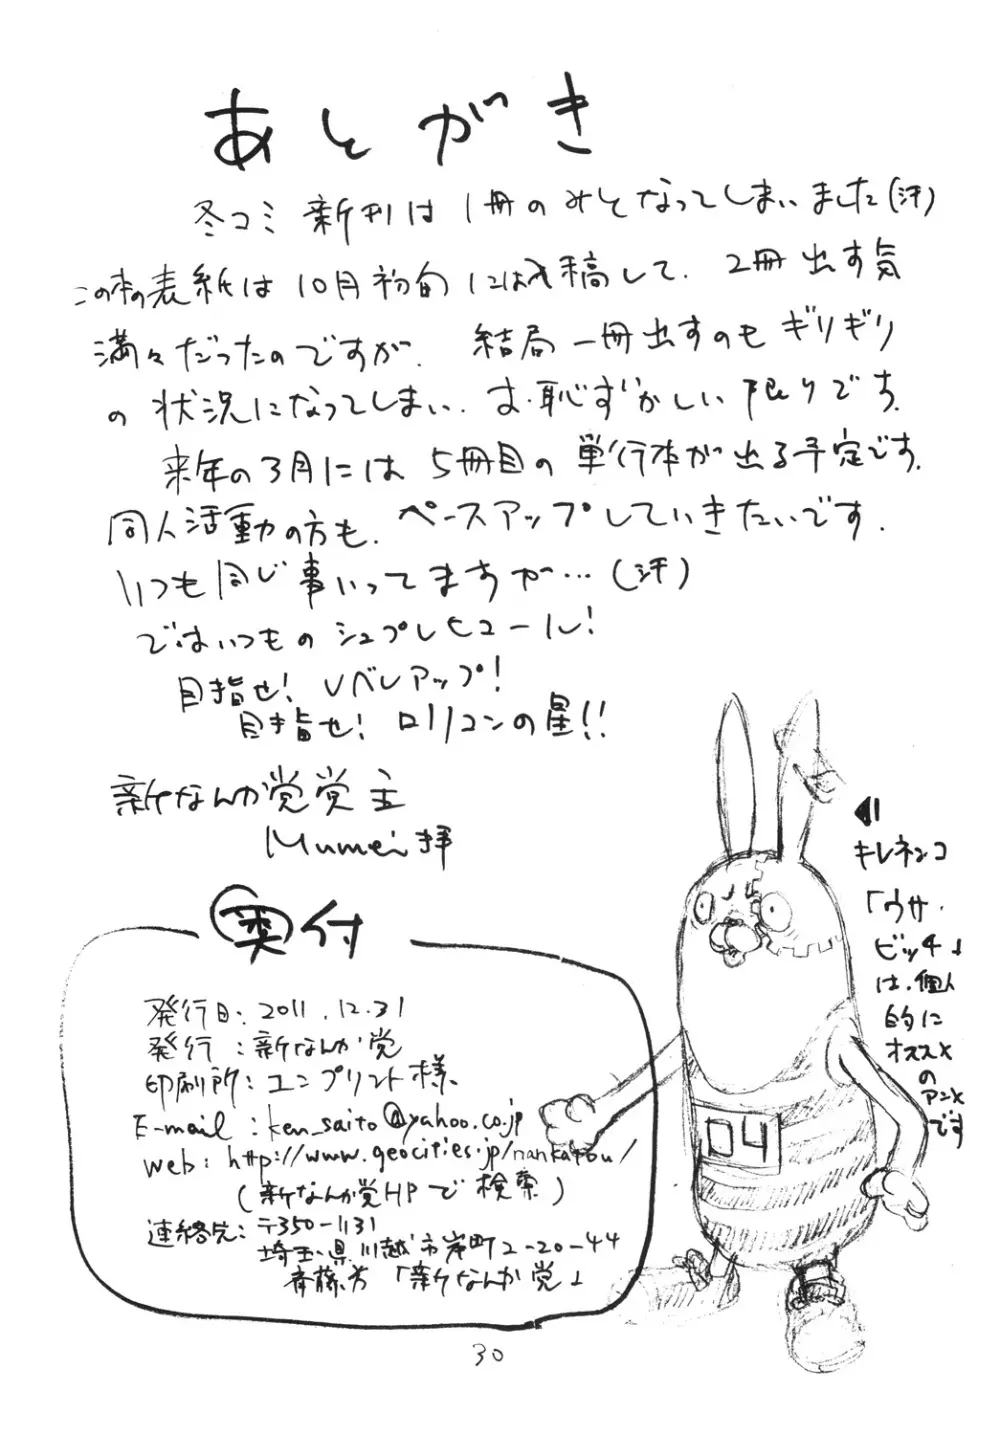 あとがき
冬コミ新刊は1冊のみとなってしまいました(汗)
この本の表紙は10月初旬には入稿して、2冊出す気
満々だったのですが、結局一冊出すのもギリギリ
の状況になってしまい、お恥ずかしい限りです。
来年の3月には5冊目の単行本が出る予定です。
同人活動の方も、ペースアップしていきたいです。
いつも同じ事いってますが…(汗)
ではいつものシュプレヒコール!
目指せ!レベルアップ!
目指せ!ロリコンの星!!
新なんか党党主
Mumei拝
奥付
発行日:2011.12.31
発行:新なんか党
印刷所:ユニプリント様
E-mail:ken_saito@yahoo.co.jp
web:http://www.geocities.jp/nankatou/
(新なんか党HPで検索)
連絡先:〒350-1131
埼玉県川越市岸町2-20-44
斉藤方「新なんか党」
キレネンコ
「ウサ・
ビッチ」
は、個人
的に
オススメ
の
アニメ
です
04
30